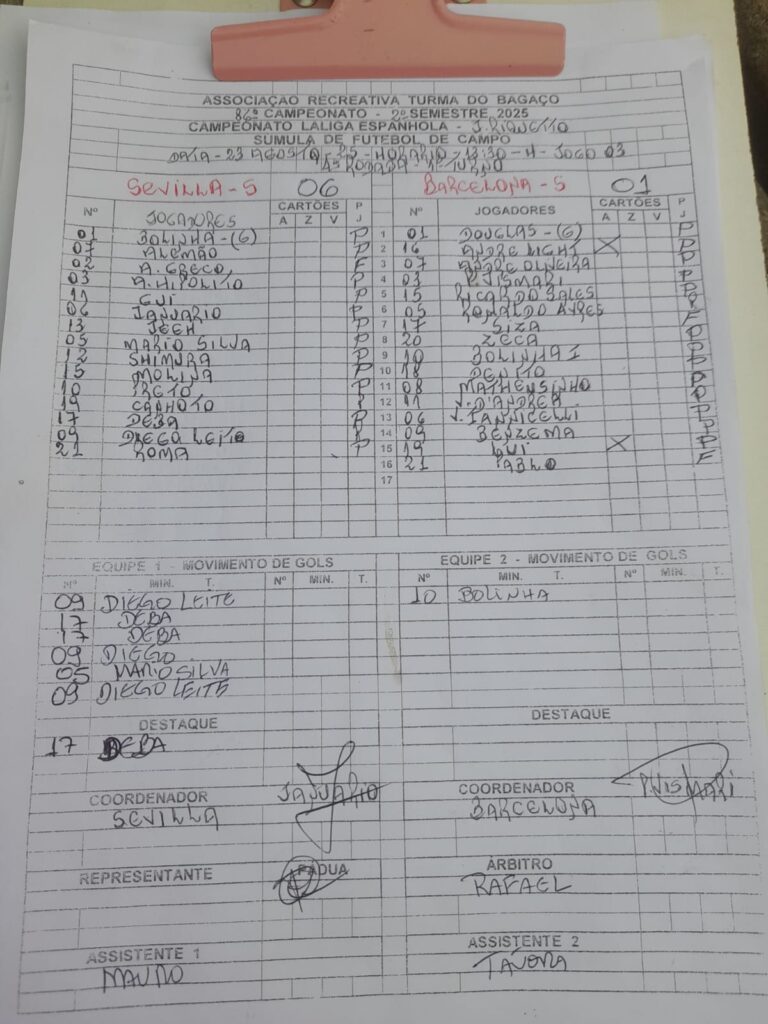 ASSOCIAÇÃO RECREATIVA TURMA DO BAGAÇO
86º CAMPEONATO - 2º SEMESTRE 2025
CAMPEONATO LALIGA ESPANHOLA - J. RIQUETTO
SÚMULA DE FUTEBOL DE CAMPO
DATA - 23 AGOSTO, 25 - HORARIO - 13:30 - H - JOGO 03
4ª RODADA - 1º TURNO
SEVILLA - S 06 BARCELONA - S 01
Nº JOGADORES CARTÕES P Nº JOGADORES CARTÕES P
A Z V J A Z V J
01 BOLINHA - (G) P 1 01 DOUGLAS - (G) P
07 ALEMÃO P 2 16 ANDRE LIGHI X P
02 A. GRECO F 3 07 ANDRE OLIVEIRA P
03 A. HIPOLITO P 4 03 P. VISMARI P
11 GUI P 5 15 RICARDO SALES
06 JANUARIO P 6 05 RONALDO AYRES
13 JEEH P 7 17 SIZA
05 MARIO SILVA P 8 20 ZECA
12 SHIMURA P 9 10 BOLINHA I
15 MOLINA P 10 18 DENITO
10 PRETO P 11 08 MATHEUSINHO P
19 CANHOTO 12 11 V. D'ANDREA P
17 DEBA P 13 06 V. IANNICELLI P
09 DIEGO LEITE 14 09 BENZEMA P
21 ROMA P 15 19 GUI X P
16 21 PABLO F
17
EQUIPE 1 - MOVIMENTO DE GOLS EQUIPE 2 - MOVIMENTO DE GOLS
Nº MIN. T. Nº MIN. T. Nº MIN. T. Nº MIN. T.
09 DIEGO LEITE 10 BOLINHA
17 DEBA
17 DEBA
09 DIEGO
05 MARIO SILVA
09 DIEGO LEITE
DESTAQUE DESTAQUE
17 DEBA
COORDENADOR JANUARIO COORDENADOR P. VISMARI
SEVILLA BARCELONA
REPRESENTANTE PADUA ÁRBITRO
RAFAEL
ASSISTENTE 1 ASSISTENTE 2
MAURO TAVORA